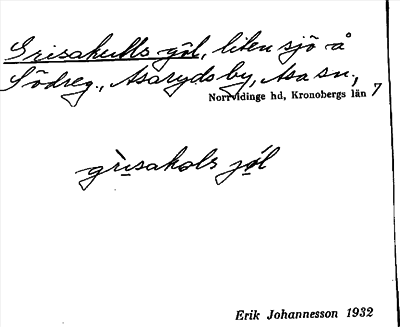 Grisakulls göl, liten sjö å
Södreg., Asarydsby, Asa sn.,
Norrvidinge hd, Kronobergs län 7
grisakols jöl
Erik Johannesson 1932